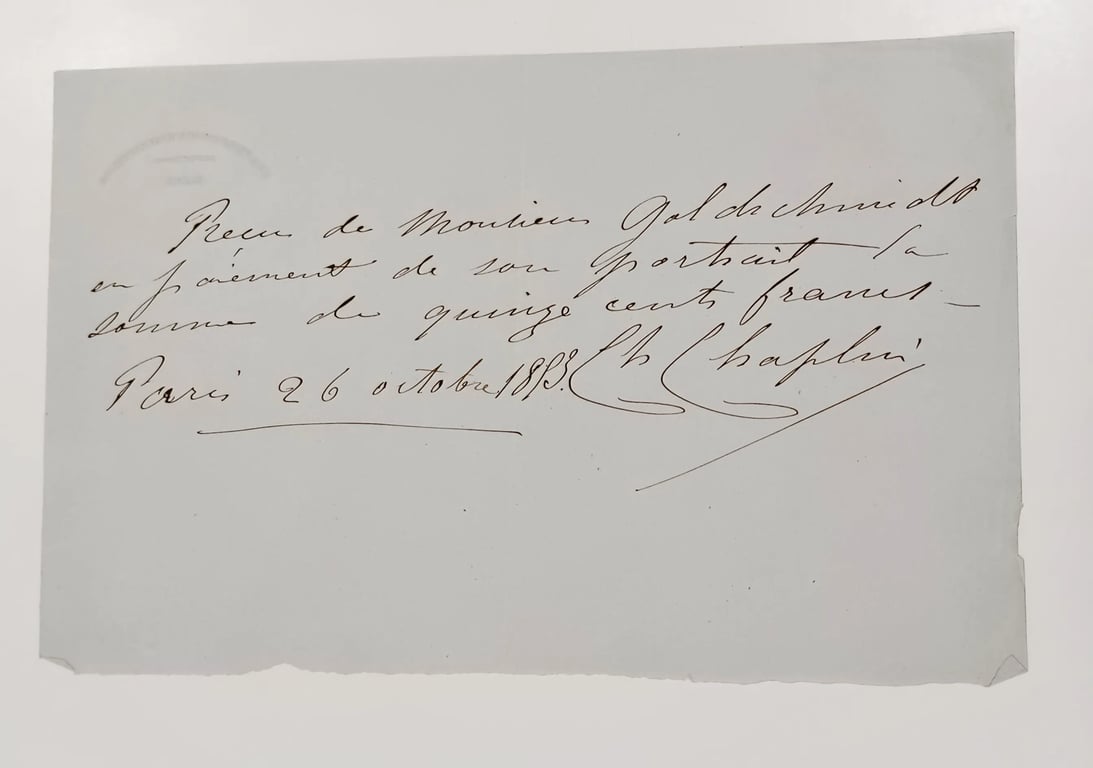 Reçu de Monsieur Goldschmidt
en paiement de son portrait la
somme de quinze cents francs –
Paris 26 octobre Ch Chaplin